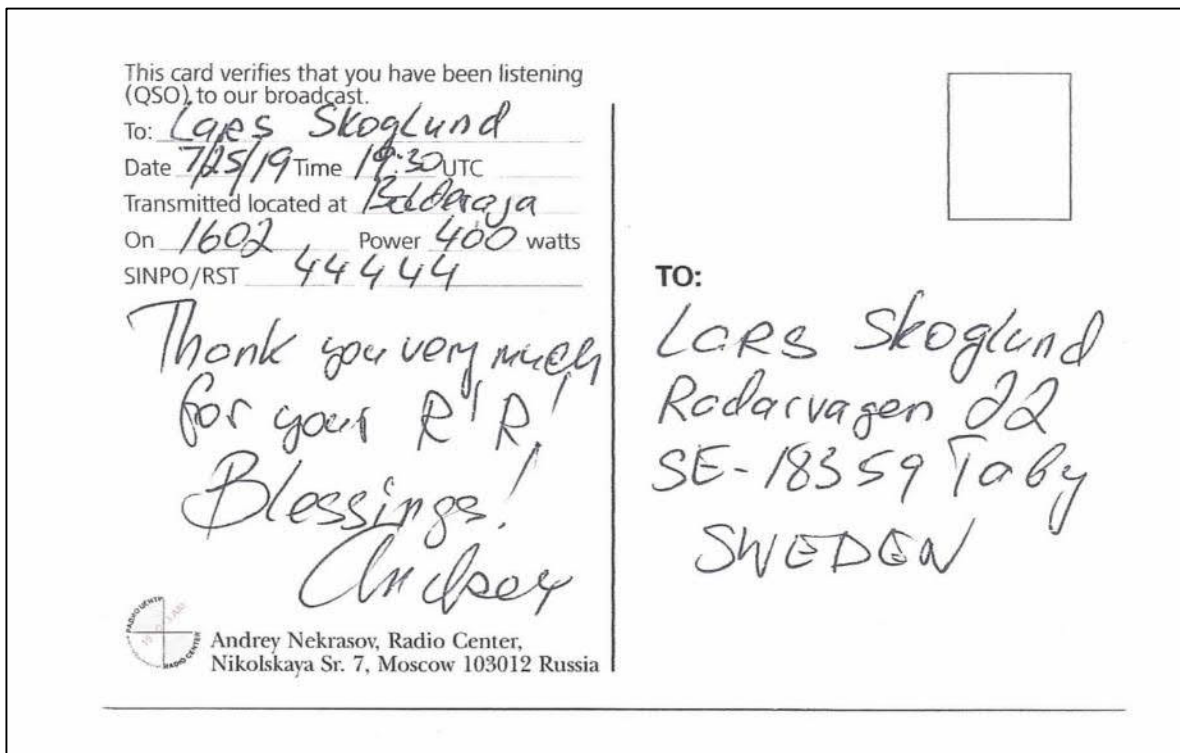 This card verifies that you have been listening
(QSO) to our broadcast.
To: Lars Skoglund
Date 7/25/19 Time 19:30 UTC
Transmitted located at Bolderaja
On 1602 Power 400 watts
SINPO/RST 44444
Thank you very much
for your R'R!
Blessings!
РАДИО ЦЕНТР
RADIO CENTER
Andrey Nekrasov, Radio Center,
Nikolskaya Sr. 7, Moscow 103012 Russia
TO:
Lars Skoglund
Radarvagen 22
SE-18359 Taby
SWEDEN